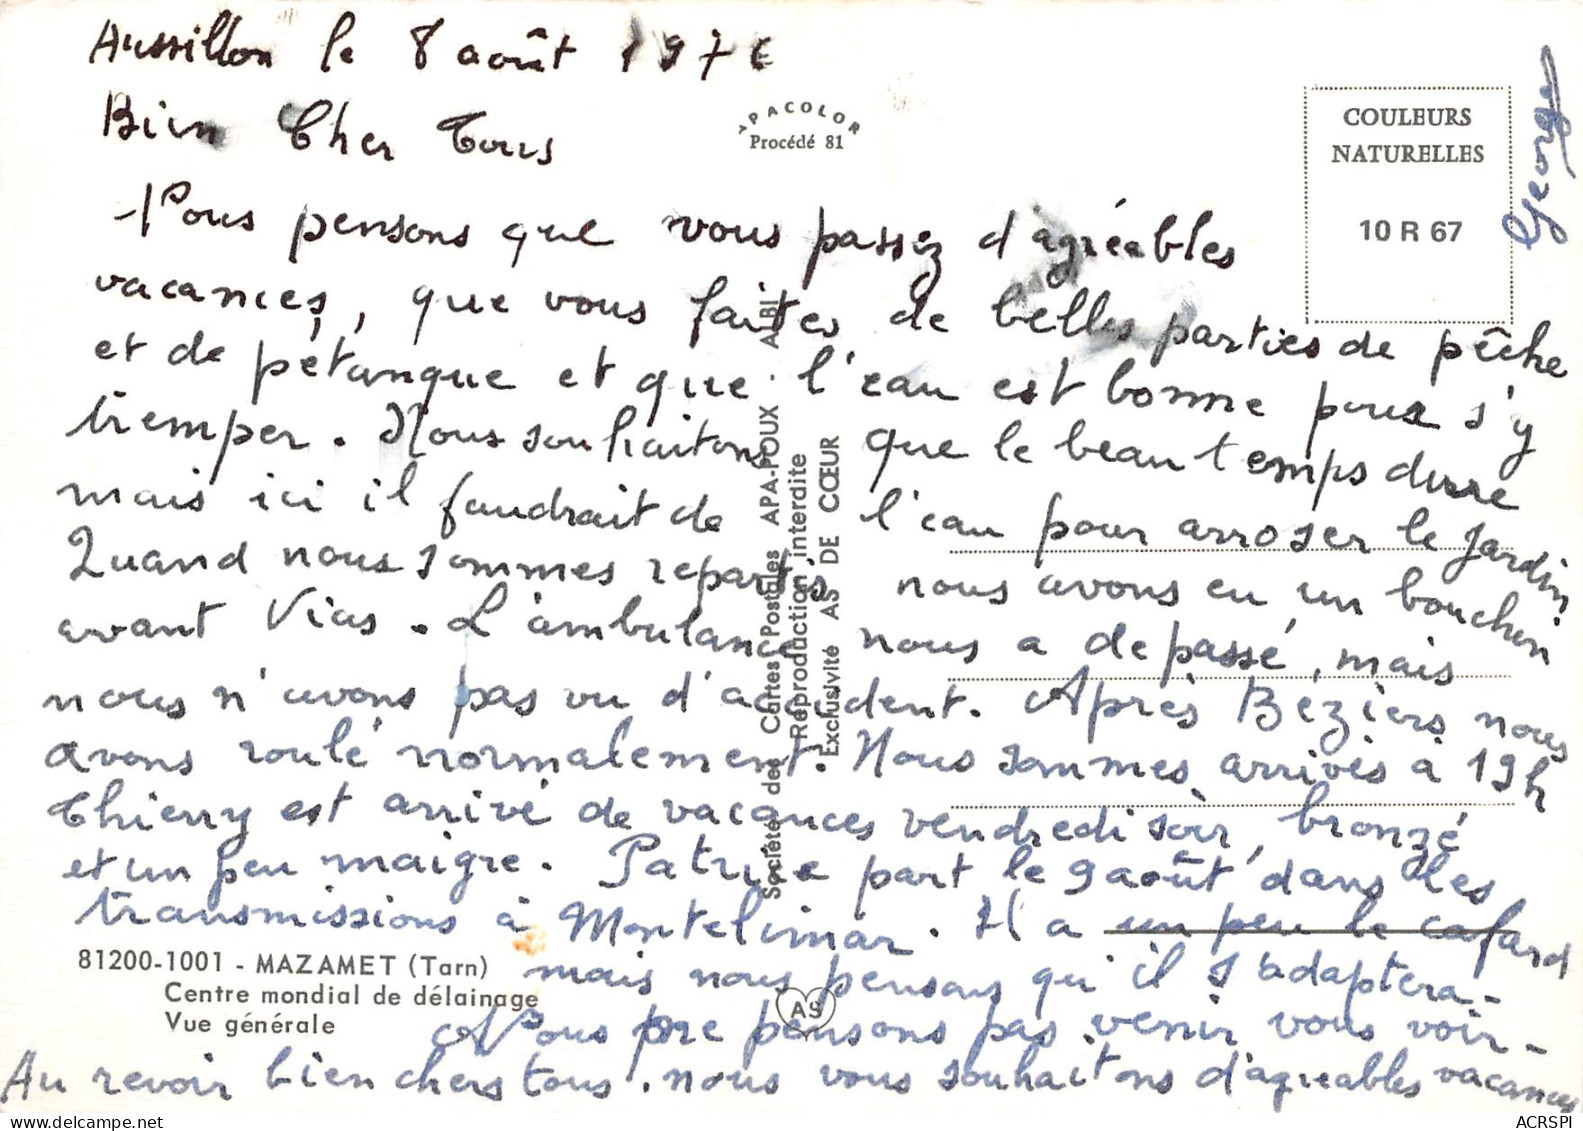 Aussillon le 8 août 1976
Bien Cher Tous
Nous pensons que vous passez d'agréables
vacances, que vous faites de belles parties de pêche
et de pétanque et que l'eau est bonne pour s'y
tremper. Nous souhaitons que le beau temps dure
mais ici il faudrait de l'eau pour arroser le jardin
Quand nous sommes repartis nous avons eu un bouchon
avant Vias. L'ambulance nous a depassé, mais
nous n'avons pas vu d'accident. Après Béziers nous
avons roulé normalement. Nous sommes arrivés à 19h
Thierry est arrivé de vacances vendredi soir, bronzé
et un peu maigre. Patrice part le 9 août dans les
transmissions à Montelimar. Il a un peu le cafard
mais nous pensons qu'il s'adaptera -
Nous ne pensons pas venir vous voir -
Au revoir bien chers tous. nous vous souhaitons d'agréables vacances
Georges
APACOLOR
Procédé 81
COULEURS
NATURELLES
10 R 67
Société des Cartes Postales APA-POUX - ALBI
Reproduction interdite
Exclusivité AS DE CŒUR
81200-1001 - MAZAMET (Tarn)
Centre mondial de délainage
Vue générale
AS
ACRSPI